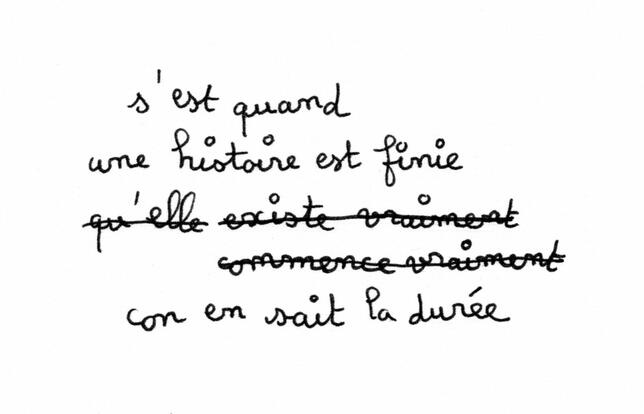 s'est quand
une histoire est finie
qu'elle existe vraiment
commence vraiment
con en sait la durée